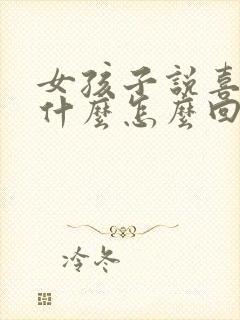 女孩子說喜
什麼怎麼回
冷冬